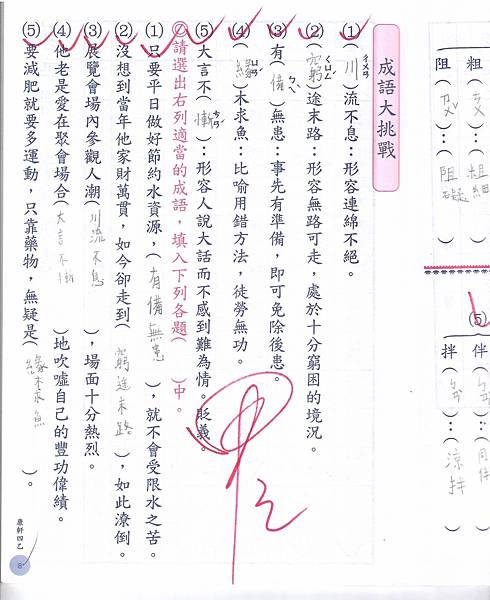 粗(ㄘㄨ):(粗細)
阻(ㄗㄨˇ):(阻礙)
⑤
伴(ㄅㄢˋ):(同伴)
拌(ㄅㄢˋ):(涼拌)
成語大挑戰
①(川)流不息:形容連綿不絕。
ㄔㄨㄢ
②(窮)途末路:形容無路可走,處於十分窮困的境況。
ㄑㄩㄥˊ
③有(備)無患:事先有準備,即可免除後患。
ㄅㄟˋ
④(緣)木求魚:比喻用錯方法,徒勞無功。
ㄩㄢˊ
⑤大言不(慚):形容人說大話而不感到難為情。貶義。
ㄘㄢˊ
◎請選出右列適當的成語,填入下列各題( )中。
①只要平日做好節約水資源,(有備無患),就不會受限水之苦。
②沒想到當年他家財萬貫,如今卻走到(窮途末路),如此潦倒。
③展覽會場內參觀人潮(川流不息),場面十分熱烈。
④他老是愛在聚會場合(大言不慚)地吹噓自己的豐功偉績。
⑤要減肥就要多運動,只靠藥物,無疑是(緣木求魚)。
康軒四乙
8